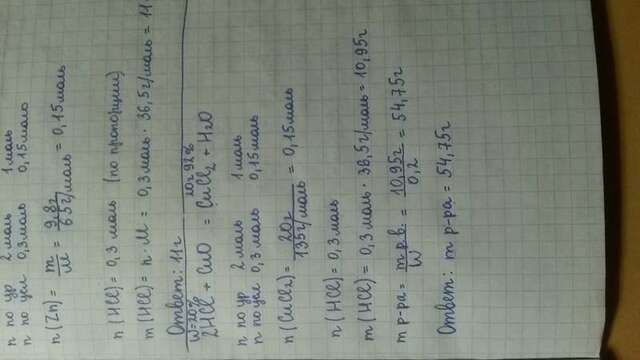 n по ур 2 моль 1 моль
n по усл 0,3 моль 0,15 моль
n(Zn) = m/M = 9,8г/65г/моль = 0,15 моль
n(HCl) = 0,3 моль (по пропорции)
m(HCl) = n · M = 0,3 моль · 36,5г/моль = 11
Ответ: 11г
W=20% 20г 92%
2HCl + CuO = CuCl2 + H2O
n по ур 2 моль 1 моль
n по усл 0,3 моль 0,15 моль
n(CuCl2) = 20г/135г/моль = 0,15 моль
n(HCl) = 0,3 моль
m(HCl) = 0,3 моль · 36,5г/моль = 10,95г
m р-ра = m р.в./W = 10,95г/0,2 = 54,75г
Ответ: m р-ра = 54,75г